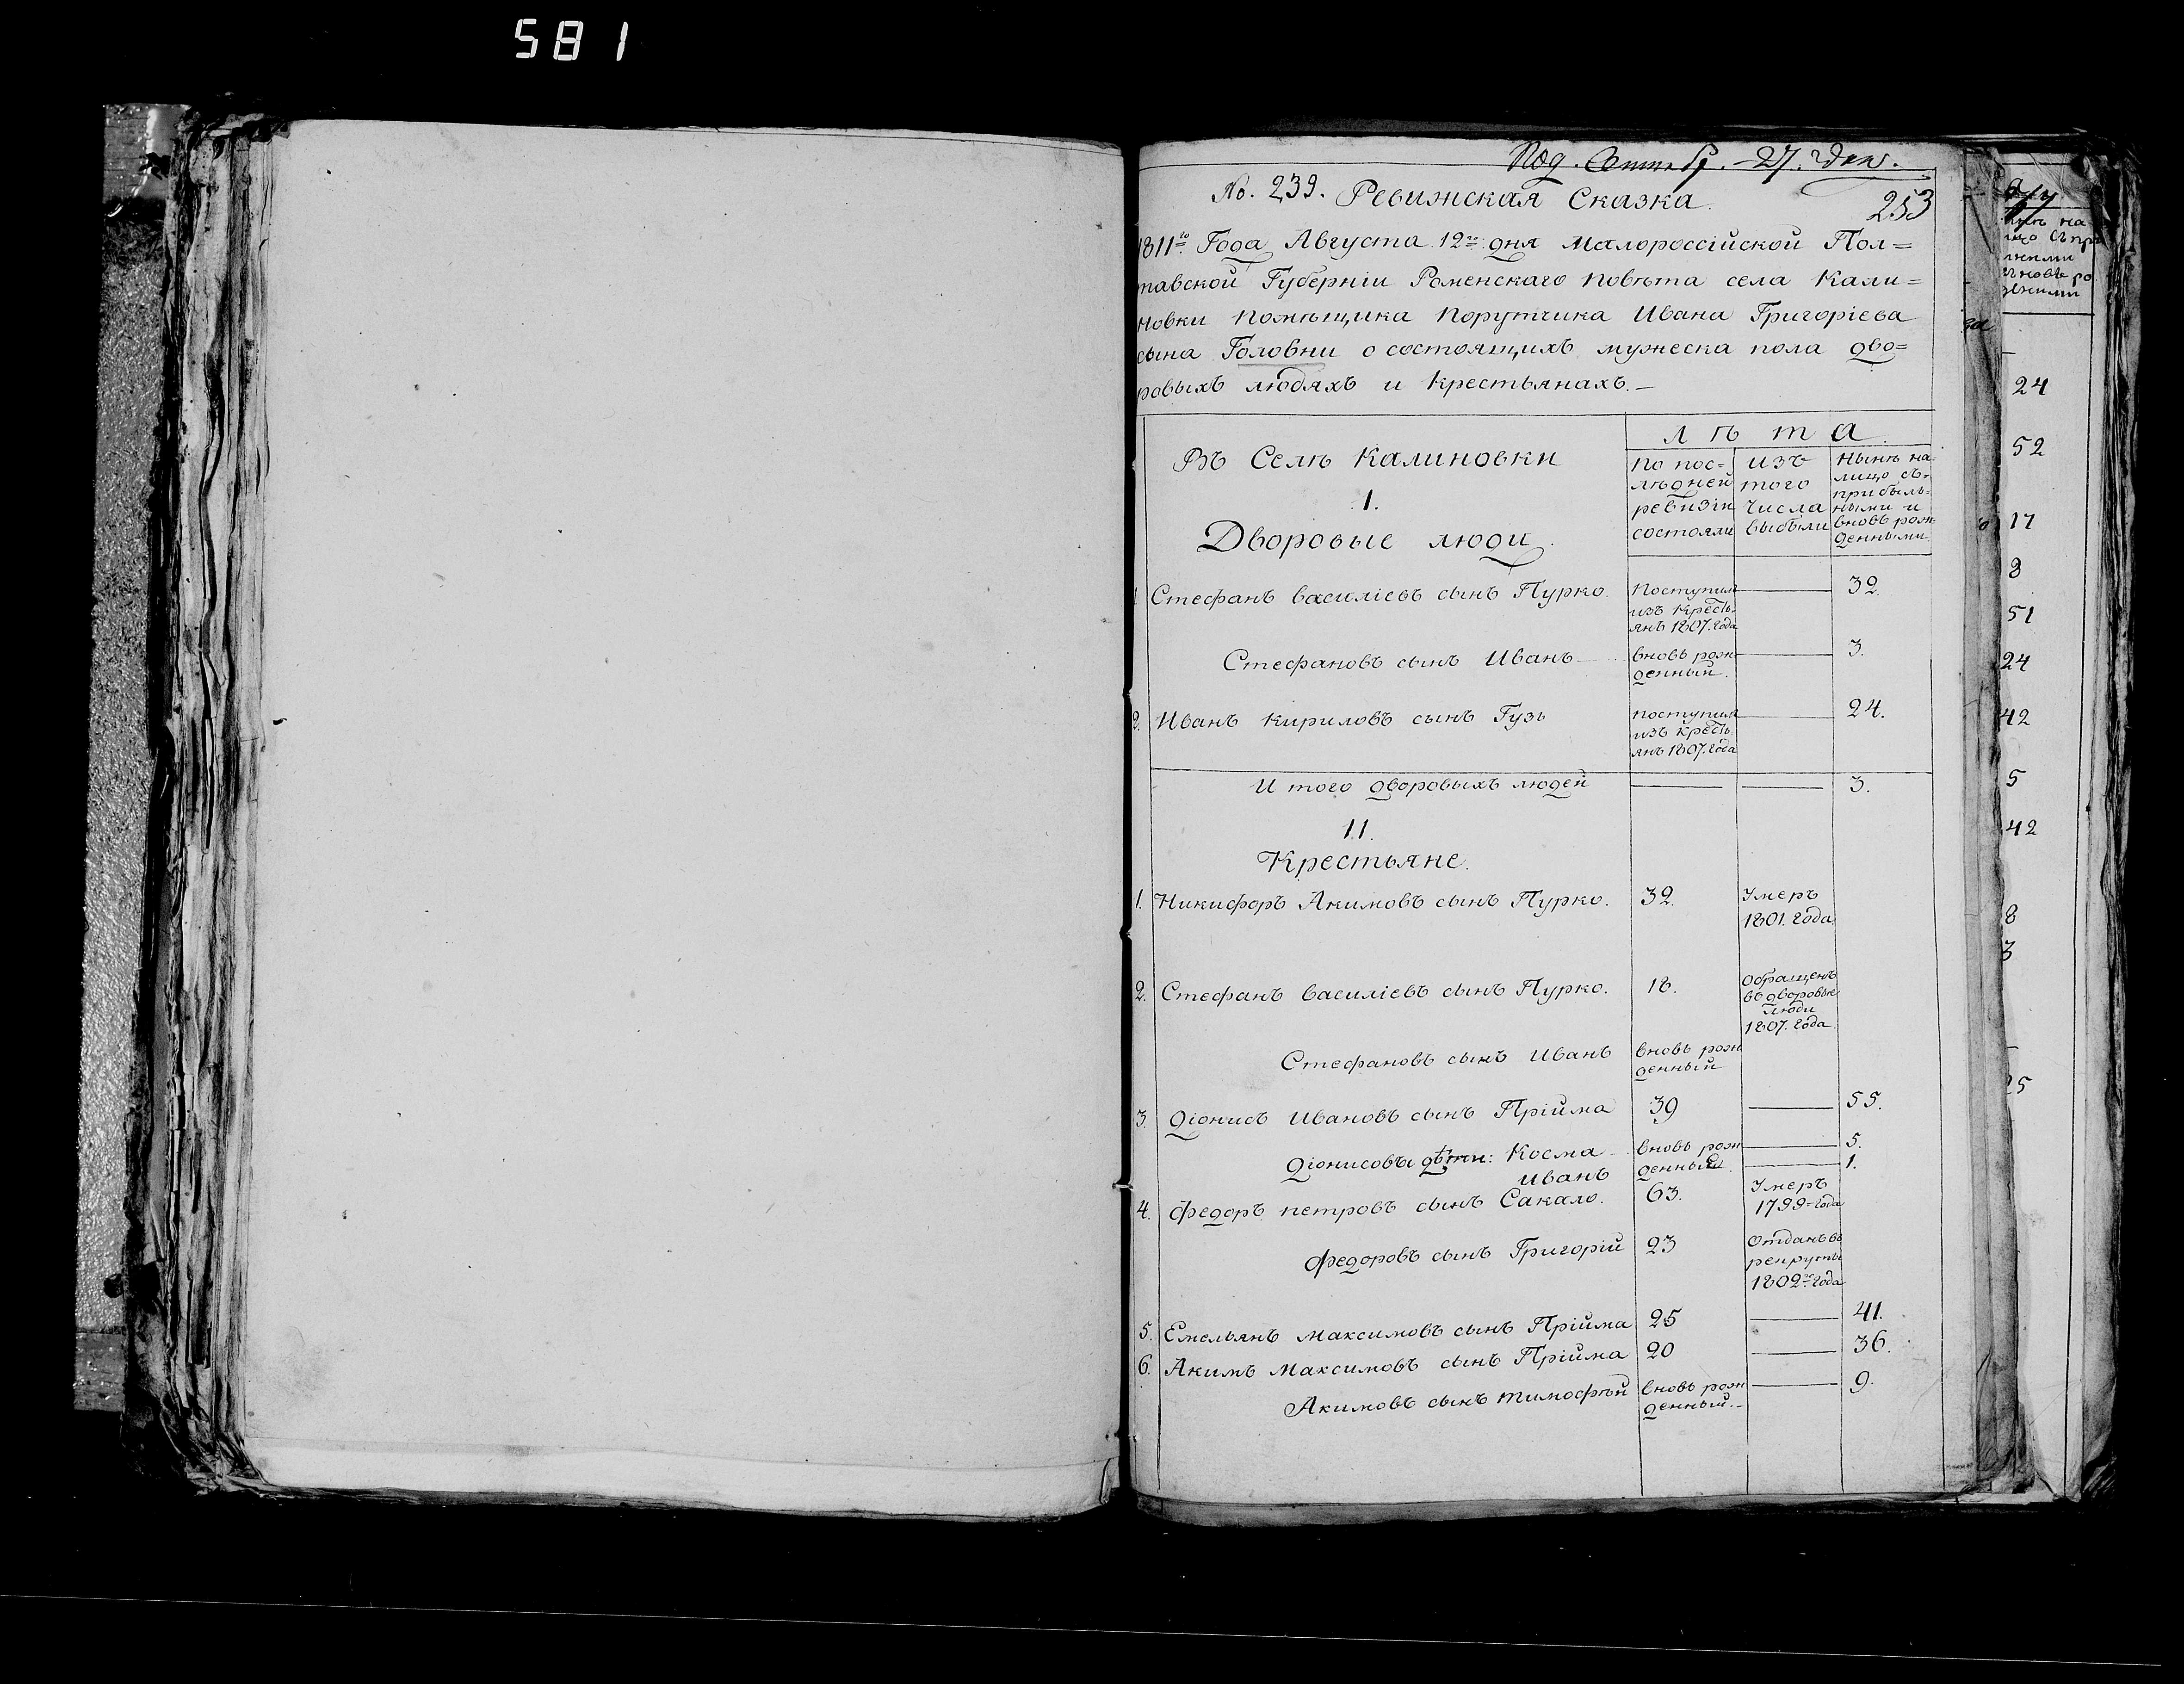 581
Под. Сентябр. 27. дня.
No. 239. Ревижская Сказка.
253
1811го Года Августа 12го дня Малороссійской Пол=
тавской Губерніи Роменскаго повѣта села Кали=
новки помѣщика порутчика Ивана Григоріева
сына Головни о состоящихъ мужеска пола дво=
ровыхъ людяхъ и крестьянахъ.—
Въ Селѣ Калиновки
лѣта.
По послѣдней ревизіи состояли | изъ того числа выбыли | Нынѣ на лицо съ прибылыми и вновь рожденными
1.
Дворовые люди.
1 Стефанъ Василіевъ сынъ Пурко. | Поступилъ изъ крестьянъ 1807. года | — | 32.
Стефановъ сынъ Иванъ — | вновь рожденный. | — | 3.
2. Иванъ Кириловъ сынъ Гузь | поступилъ изъ крестьянъ 1807. года | — | 24.
И того дворовыхъ людей | — | — | 3.
11.
Крестьяне.
1. Никифоръ Акимовъ сынъ Пурко. | 32. | Умеръ 1801. года
2. Стефанъ Василіевъ сынъ Пурко. | 18. | Обращенъ во дворовые люди 1807. года.
Стефановъ сынъ Иванъ | вновь рожденный
3. Діонисъ Ивановъ сынъ Прійма | 39 | — | 55.
Діонисовы дѣти: Косма | вновь рожденные. | — | 5.
Иванъ | — | 1.
4. Федоръ Петровъ сынъ Сакало. | 63. | Умеръ 1799= года
Федоровъ сынъ Григорій | 23 | Отданъ въ рекруты 1802го года
5. Емельянъ Максимовъ сынъ Прійма | 25 | — | 41.
6. Акимъ Максимовъ сынъ Прійма | 20 | — | 36.
Акимовъ сынъ Тимофѣй | вновь рожденный.— | — | 9.
24
52
17
8
51
24
42
5
42
8
3
25